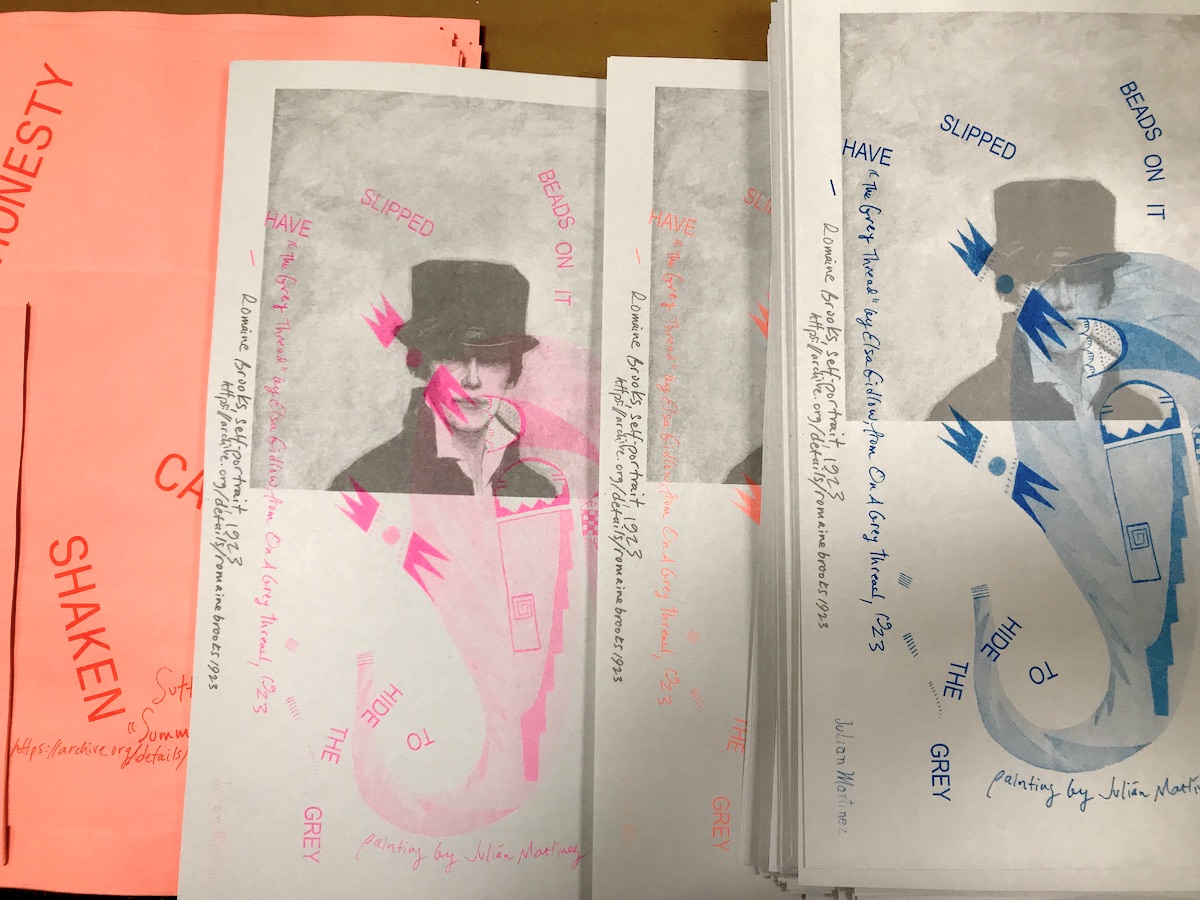 HONESTY
CA
SHAKEN
"Summ
https://archive.org/details/
HAVE
SLIPPED
BEADS ON IT
"The Grey Thread" by Elsa Gidlow, from On A Grey Thread, 1923
— Romaine Brooks, self-portrait, 1923
https://archive.org/details/romainebrooks1923
TO
HIDE
THE
GREY
painting by Julián Martinez
HAVE
SLI
"The Grey Thread" by Elsa Gidlow, from On A Grey Thread, 1923
— Romaine Brooks, self-portrait, 1923
https://archive.org/details/romainebrooks1923
THE
GREY
HAVE
SLIPPED
BEADS ON IT
"The Grey Thread" by Elsa Gidlow, from On A Grey Thread, 1923
— Romaine Brooks, self-portrait, 1923
https://archive.org/details/romainebrooks1923
TO
HIDE
THE
GREY
Julian Martinez
painting by Julián Martin